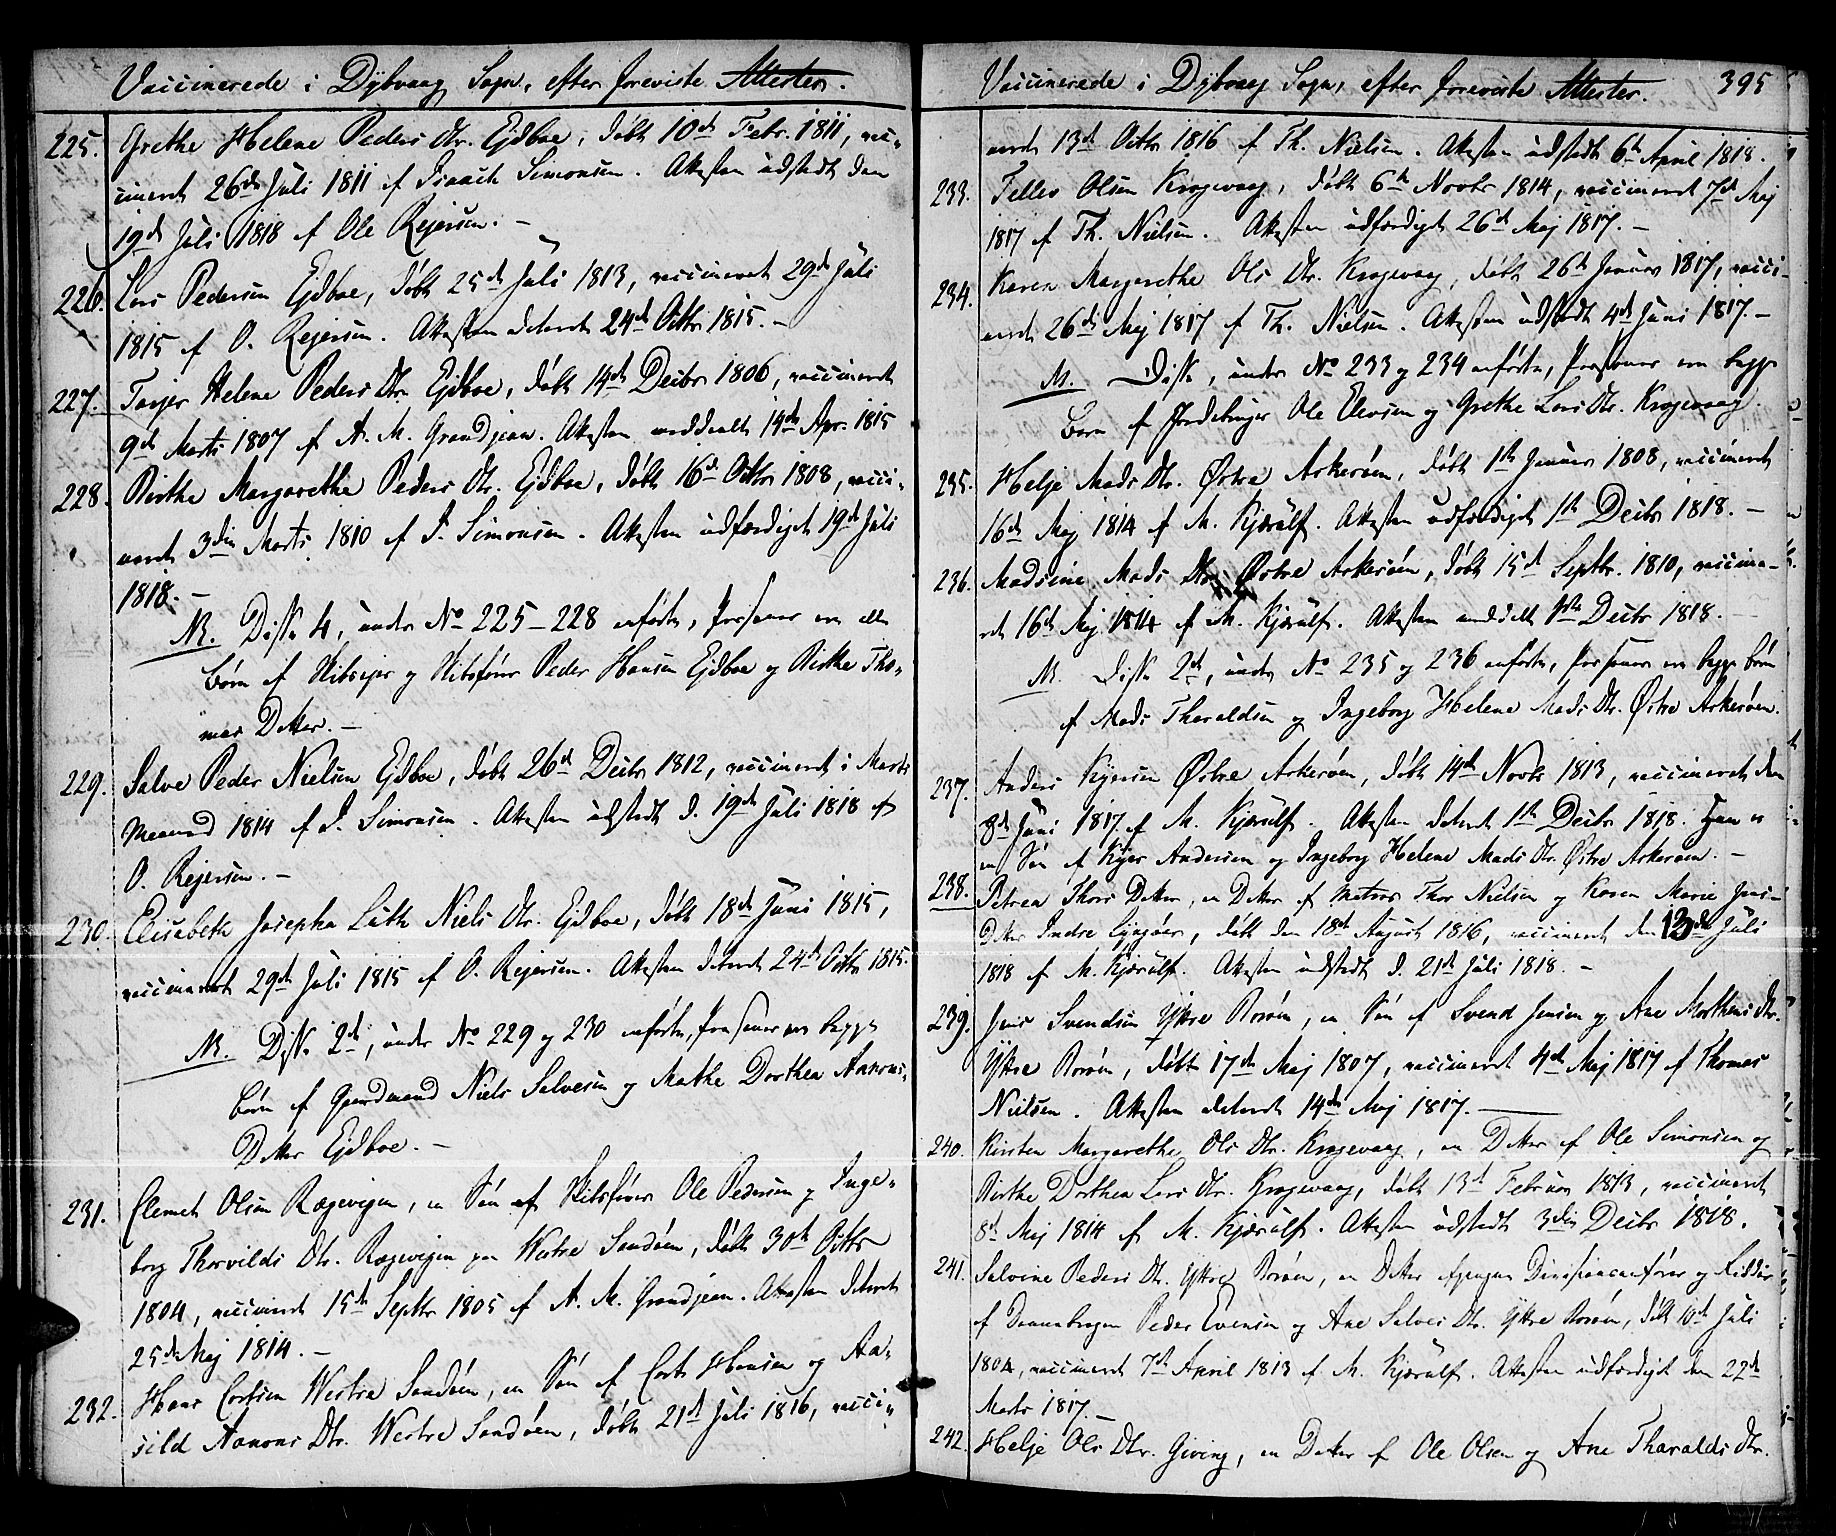 Vaccinerede i Dybvaag Sogn, efter foreviste Attester.
225. Grethe Helene Peders Dtr. Ejdboe, døbt 10de Febr. 1811, vac-
cineret 26de Juli 1811 af Isaach Simonsen. Attesten udstedt den
19de Juli 1818 af Ole Rejersen. –
226. Lars Pedersen Ejdboe, døbt 25de Juli 1813, vaccineret 29de Juli
1815 af O. Rejersen. Attesten dateret 24de Octbr 1815. –
227. Helene Peders Dtr. Ejdboe, døbt 14de Decbr 1806, vaccineret
9de Marts 1807 af A. M. Grandjean. Attesten meddeelt 14de Apr. 1815
228. Birthe Margarethe Peders Dtr. Ejdboe, døbt 16de Octbr 1808, vacci-
neret 3die Marts 1810 af I. Simonsen. Attesten udfærdiget 19de Juli
1818. –
NB. Disse 4, under No 225–228 anførte, Personer ere alle
Børn af Peder Hansen Ejdboe og Birthe Tho-
mas Datter. –
229. Salve Peder Nielsen Ejdboe, døbt 26de Decbr 1812, vaccineret i Marts
Maaned 1814 af I. Simonsen. Attesten udstedt d. 19de Juli 1818 af
O. Rejersen. –
230. Elisabeth Josepha Niels Dtr. Ejdboe, døbt 18de Juni 1815,
vaccineret 29de Juli 1815 af O. Rejersen. Attesten dateret 24de Octbr 1815.
NB. Disse 2de, under No 229 og 230 anførte, Personer ere begge
Børn af Gaardmand Niels Salvesen og Mathe Dorthea Aanons-
Datter Ejdboe. –
231. Clemet Olsen Ragevigen, en Søn af Skibsfører Ole Pedersen og Inge-
borg Thorvilds Dtr. Ragevigen paa Westre Sandøen, døbt 30te Octbr
1804, vaccineret 15de Septbr 1805 af A. M. Grandjean. Attesten dateret
25de Maj 1814. –
232. Hans Cortsen Westre Sandøen, en Søn af Cort Hansen og Aa-
sild Aanons Dtr. Westre Sandøen, døbt 21de Juli 1816, vacci-
Vaccinerede i Dybvaag Sogn, efter foreviste Attester. 395
neret 13de Octbr 1816 af Th. Nielsen. Attesten udstedt 6te April 1818.
233. Tellev Olsen Krogevaag, døbt 6te Novbr 1814, vaccineret 7de Maj
1817 af Th. Nielsen. Attesten udfærdiget 26de Maj 1817. –
234. Karen Margrethe Ols Dtr. Krogevaag, døbt 26de Januar 1817, vacci-
neret 26de Maj 1817 af Th. Nielsen. Attesten udstedt 4de Juni 1817. –
NB. Disse, under No 233 og 234 anførte, Personer ere begge
Børn af Ole Elevsen og Grethe Lars Dtr. Krogevaag.
235. Helje Mads Dtr. Østre Askerøen, døbt 1ste Januar 1808, vaccineret
16de Maj 1814 af M. Kjærulf. Attesten udfærdiget 1ste Decbr 1818. –
236. Madsine Mads Dtr. Østre Askerøen, døbt 15de Septbr. 1810, vaccine-
ret 16de Maj 1814 af M. Kjærulf. Attesten meddelt 1ste Decbr 1818. –
NB. Disse 2de, under No 235 og 236 anførte, Personer ere begge Børn
af Mads Tharaldsen og Ingeborg Helene Mads Dtr. Østre Askerøen.
237. Anders Kjersen Østre Askerøen, døbt 14de Novbr 1813, vaccineret den
8de Juni 1817 af M. Kjærulf. Attesten dateret 1ste Decbr 1818. Han er
en Søn af Kjer Andersen og Ingeborg Helene Mads Dtr. Østre Askerøen. –
238. Petrea Thors Datter, en Datter af Matros Thor Nielsen og Karen Marie Jens-
Datter Indre Lyngøer, døbt den 18de August 1816, vaccineret den 13de Juli
1818 af M. Kjærulf. Attesten udstedt d. 21de Juli 1818. –
239. Jens Svendsen Yttre Borøen, en Søn af Svend Jensen og Ane Mathens Dtr.
Yttre Borøen, døbt 17de Maj 1807, vaccineret 4de Maj 1817 af Thomas
Nielsen. Attesten dateret 14de Maj 1817. –
240. Kirsten Margarethe Ols Dtr. Krogevaag, en Datter af Ole Simonsen og
Birthe Dorthea Lars Dtr. Krogevaag, døbt 13de Februar 1813, vaccineret
8de Maj 1814 af M. Kjærulf. Attesten udstedt 3die Decbr 1818.
241. Salvine Peders Dtr. Yttre Borøen, en Datter af Divisionsanfører og Ridder
af Dannebrogen Peder Evensen og Ane Salves Dtr. Yttre Borøen, døbt 10de Juli
1804, vaccineret 7de April 1813 af M. Kjærulf. Attesten udfærdiget den 22de
Marts 1817. –
242. Helje Ols Dtr. Giving, en Datter af Ole Olsen og Ane Tharalds Dtr.